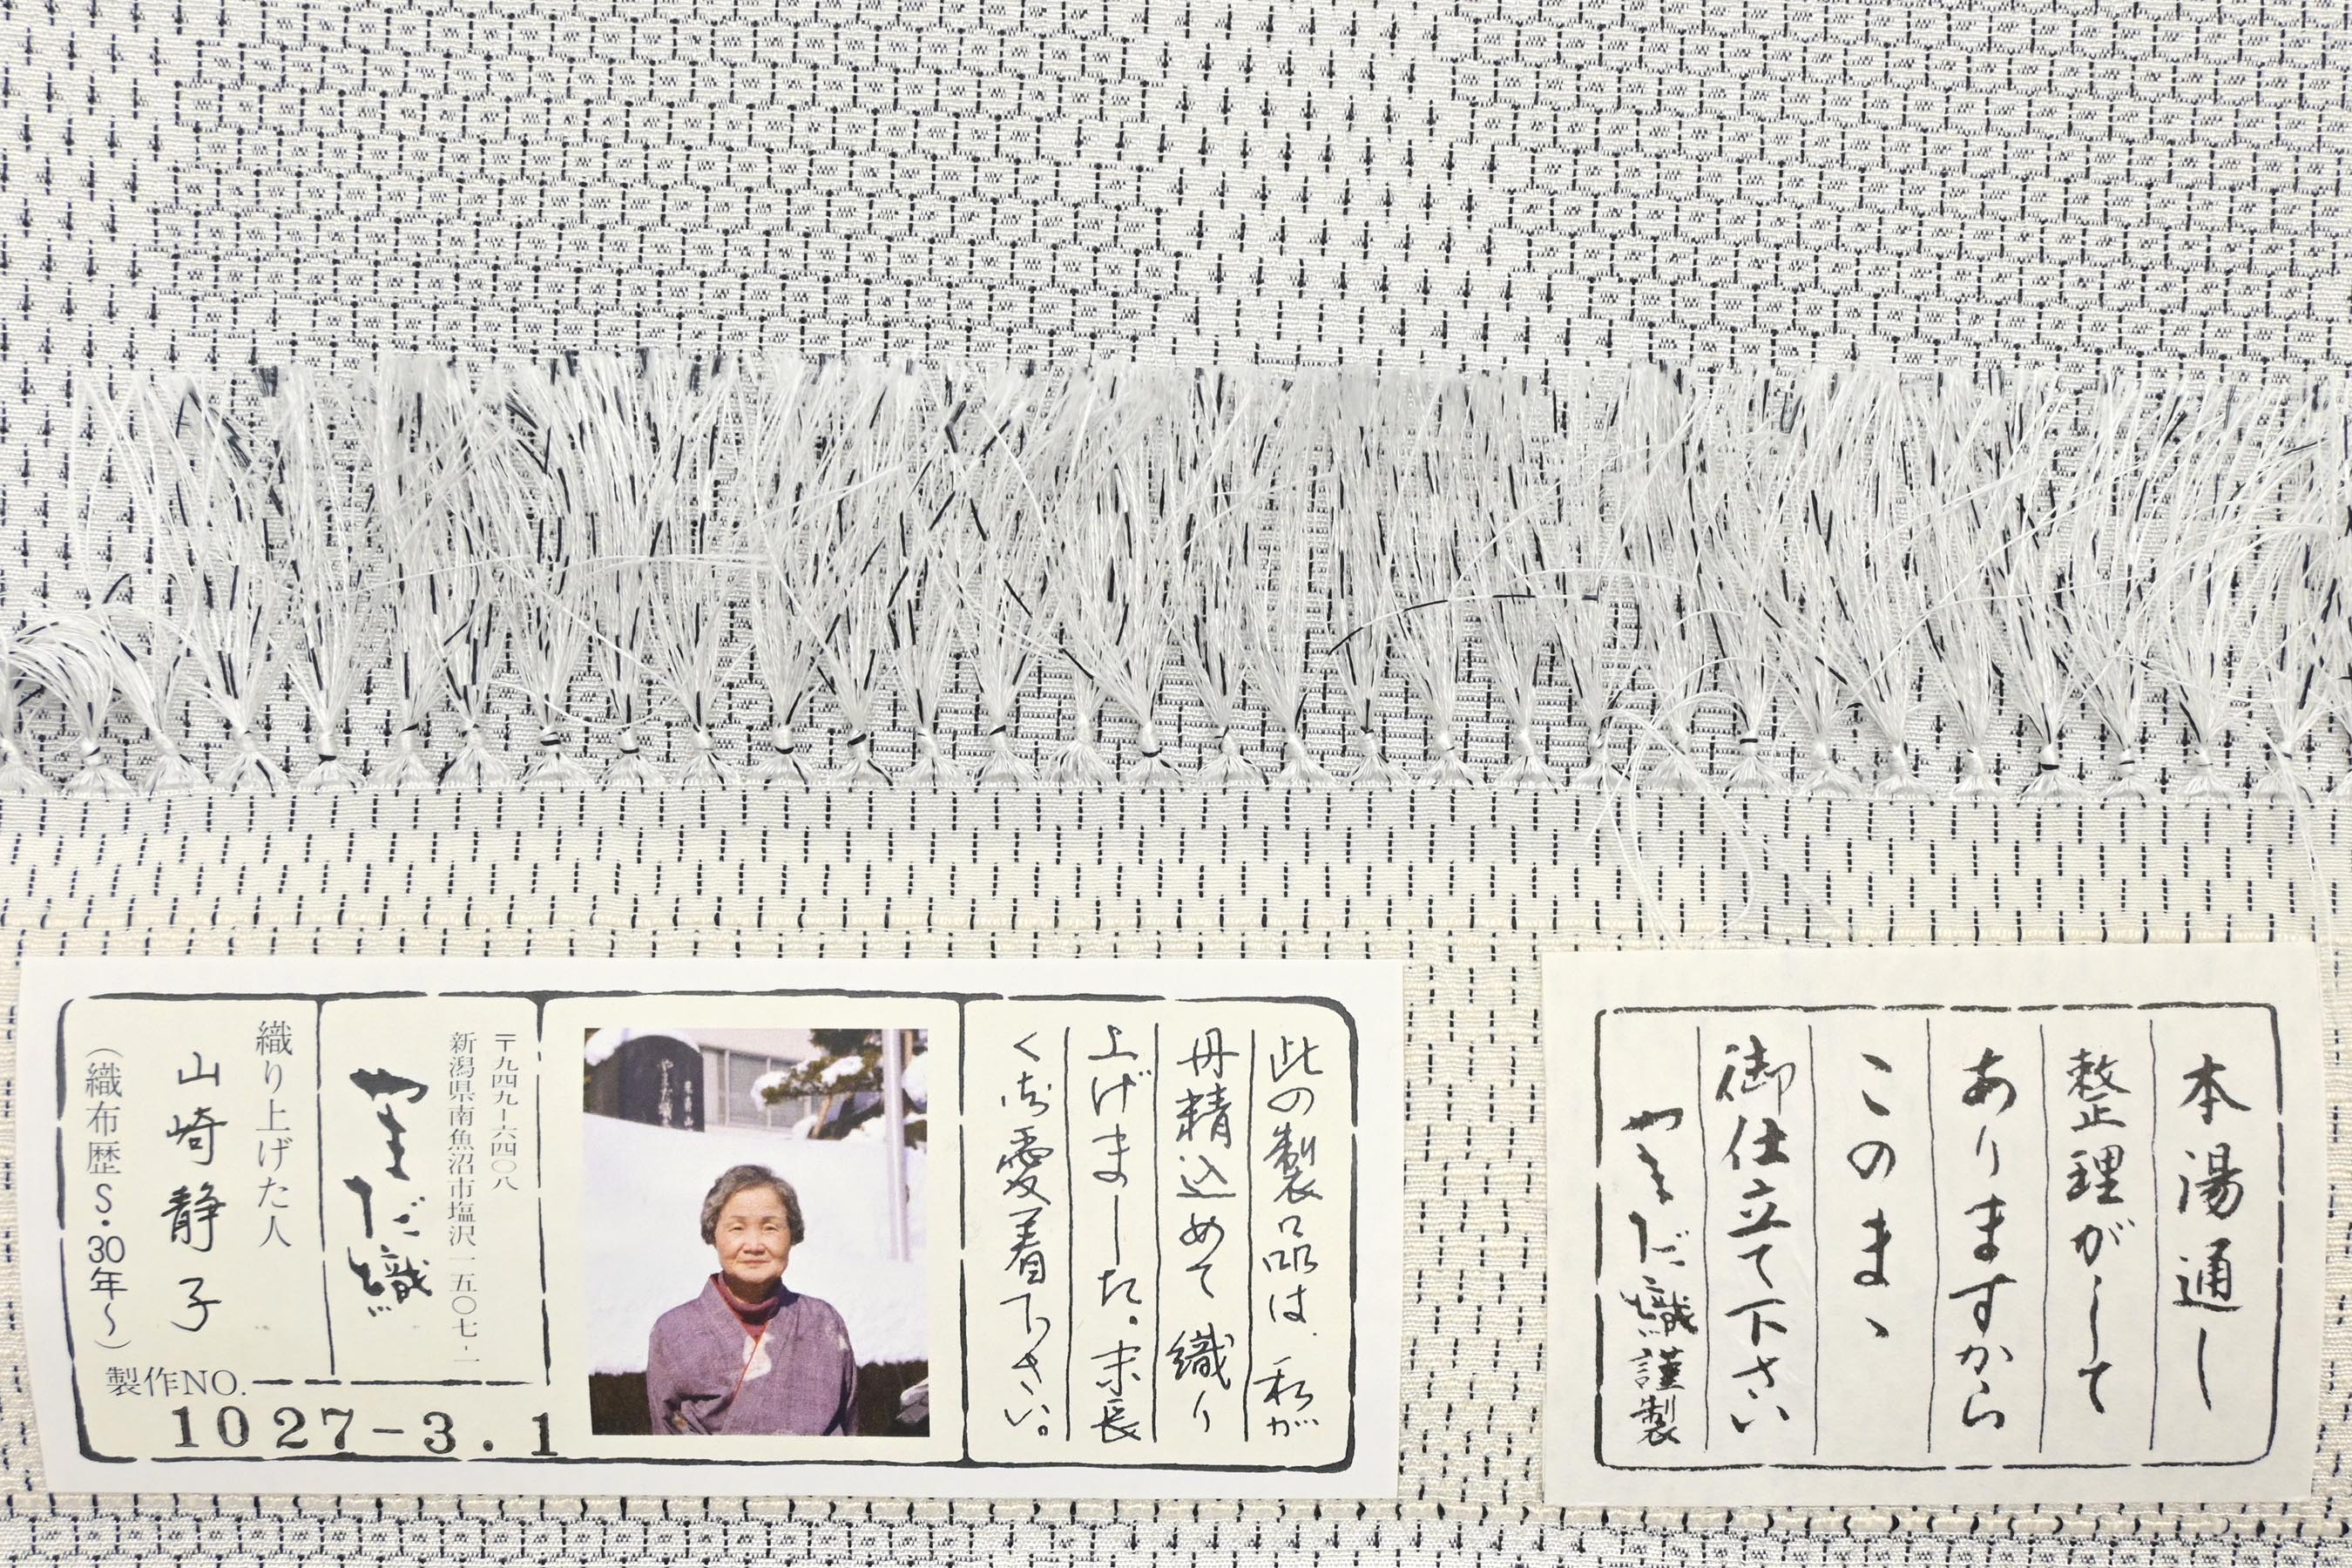 此の製品は、私が
丹精込めて織り
上げました。末長
く御愛着下さい。
〒九四九-六四〇八
新潟県南魚沼市塩沢一五〇七-一
やまだ織
織り上げた人
山崎静子
(織布歴S.30年~)
製作NO.
1027-3.1
本湯通し
整理がして
ありますから
このまゝ
御仕立て下さい
やまだ織謹製